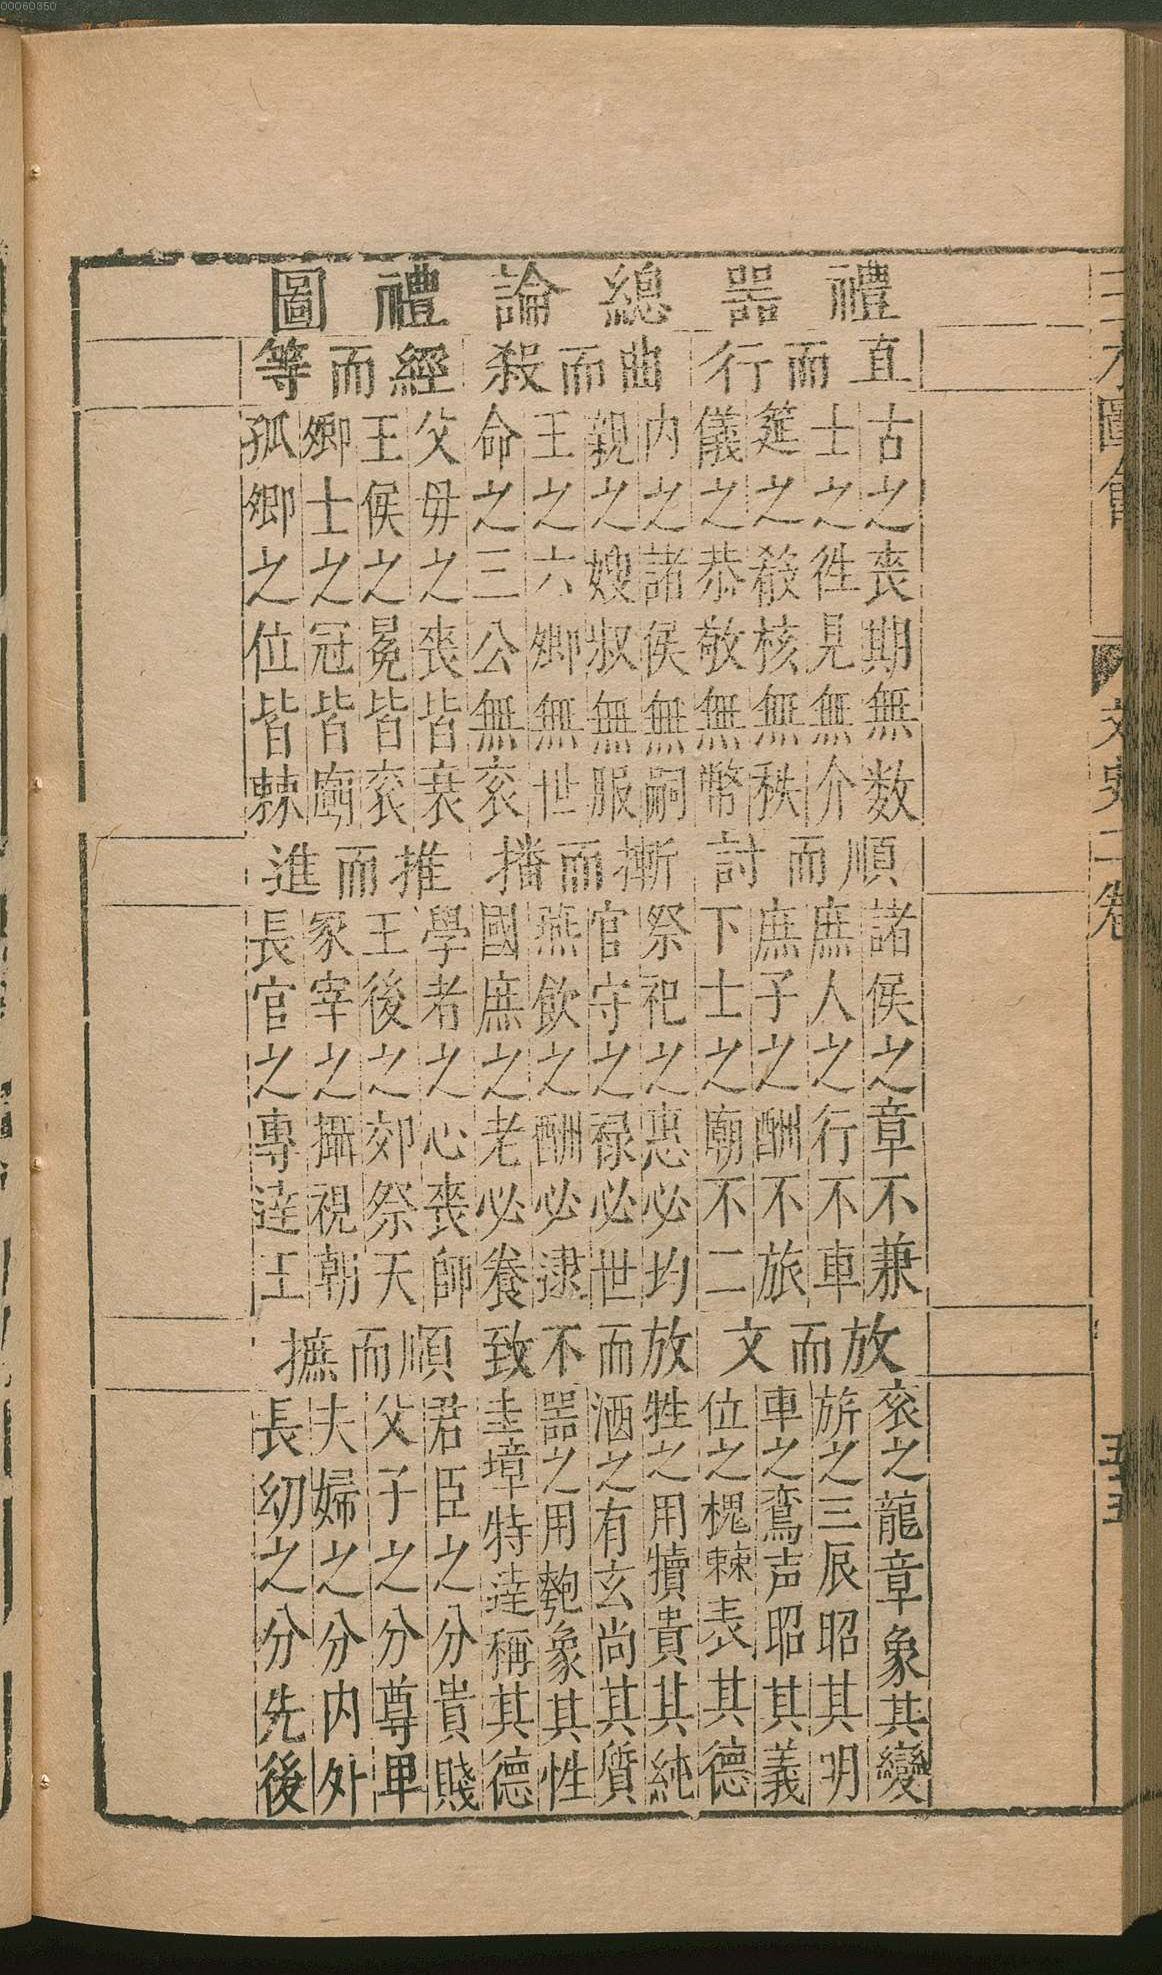 00060350
禮器總論禮圖
直而行
古之喪期無数
士之徃見無介
筵之殽核無秩
儀之恭敬無幣
曲而殺
内之諸侯無嗣
親之嫂叔無服
王之六卿無世
命之三公無衮
經而等
父毋之喪皆衰
王侯之冕皆衮
卿士之冠皆廟
孤卿之位皆棘
順而討
諸侯之章不兼
庶人之行不車
庶子之酬不旅
下士之廟不二
摲而播
祭祀之惠必均
官守之禄必世
燕飲之酬必逮
國庶之老必養
推而進
學者之心喪師
王後之郊祭天
冢宰之攝視朝
長官之專達王
放而文
衮之龍章象其變
旂之三辰昭其明
車之鸞声昭其義
位之槐棘表其德
放而不致
牲之用犢貴其純
酒之有玄尚其質
器之用匏象其性
圭璋特達稱其德
順而摭
君臣之分貴賤
父子之分尊卑
夫婦之分内外
長幼之分先後
三才圖會
文史一卷
五十五